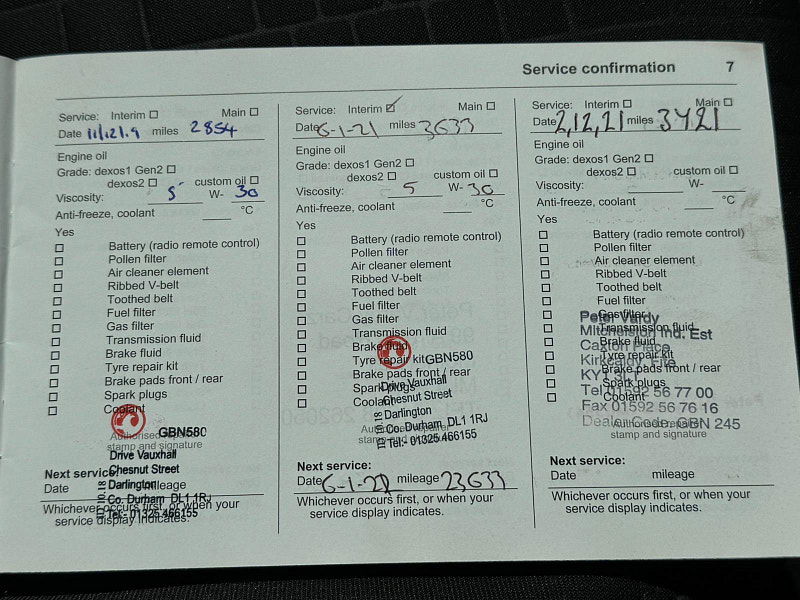 Service confirmation 7
Service: Interim ☐ Main ☐
Date 11/12/19 miles 2854
Engine oil
Grade: dexos1 Gen2 ☐
dexos2 ☐ custom oil ☐
Viscosity: 5 W- 30
Anti-freeze, coolant ____ °C
Yes
☐ Battery (radio remote control)
☐ Pollen filter
☐ Air cleaner element
☐ Ribbed V-belt
☐ Toothed belt
☐ Fuel filter
☐ Gas filter
☐ Transmission fluid
☐ Brake fluid
☐ Tyre repair kit
☐ Brake pads front / rear
☐ Spark plugs
☐ Coolant
GBN580
Authorised repairer
stamp and signature
Drive Vauxhall
Chesnut Street
Darlington
Co. Durham DL1 1RJ
Tel:- 01325 466155
Next service:
Date mileage
Whichever occurs first, or when your
service display indicates.
Service: Interim ☑ Main ☐
Date 6-1-21 miles 3633
Engine oil
Grade: dexos1 Gen2 ☐
dexos2 ☐ custom oil ☐
Viscosity: 5 W- 30
Anti-freeze, coolant ____ °C
Yes
☐ Battery (radio remote control)
☐ Pollen filter
☐ Air cleaner element
☐ Ribbed V-belt
☐ Toothed belt
☐ Fuel filter
☐ Gas filter
☐ Transmission fluid
☐ Brake fluid
☐ Tyre repair kit
GBN580
☐ Brake pads front / rear
☐ Spark plugs
☐ Coolant
Drive Vauxhall
Chesnut Street
Darlington
Co. Durham DL1 1RJ
Tel:- 01325 466155
stamp and signature
Next service:
Date 6-1-22 mileage 23633
Whichever occurs first, or when your
service display indicates.
Service: Interim ☐ Main ☐
Date 2,12,21 miles 3421
Engine oil
Grade: dexos1 Gen2 ☐
dexos2 ☐ custom oil ☐
Viscosity: ____ W- ____
Anti-freeze, coolant ____ °C
Yes
☐ Battery (radio remote control)
☐ Pollen filter
☐ Air cleaner element
☐ Ribbed V-belt
☐ Toothed belt
☐ Fuel filter
☐ Gas filter
☐ Transmission fluid
☐ Brake fluid
☐ Tyre repair kit
☐ Brake pads front / rear
☐ Spark plugs
☐ Coolant
Peter Vardy
Mitchelston Ind. Est
Caxton Place
Kirkcaldy, Fife
KY1
Tel 01592 56 77 00
Fax 01592 56 76 16
Dealer Code. GBN 245
Authorised repairer
stamp and signature
Next service:
Date mileage
Whichever occurs first, or when your
service display indicates.